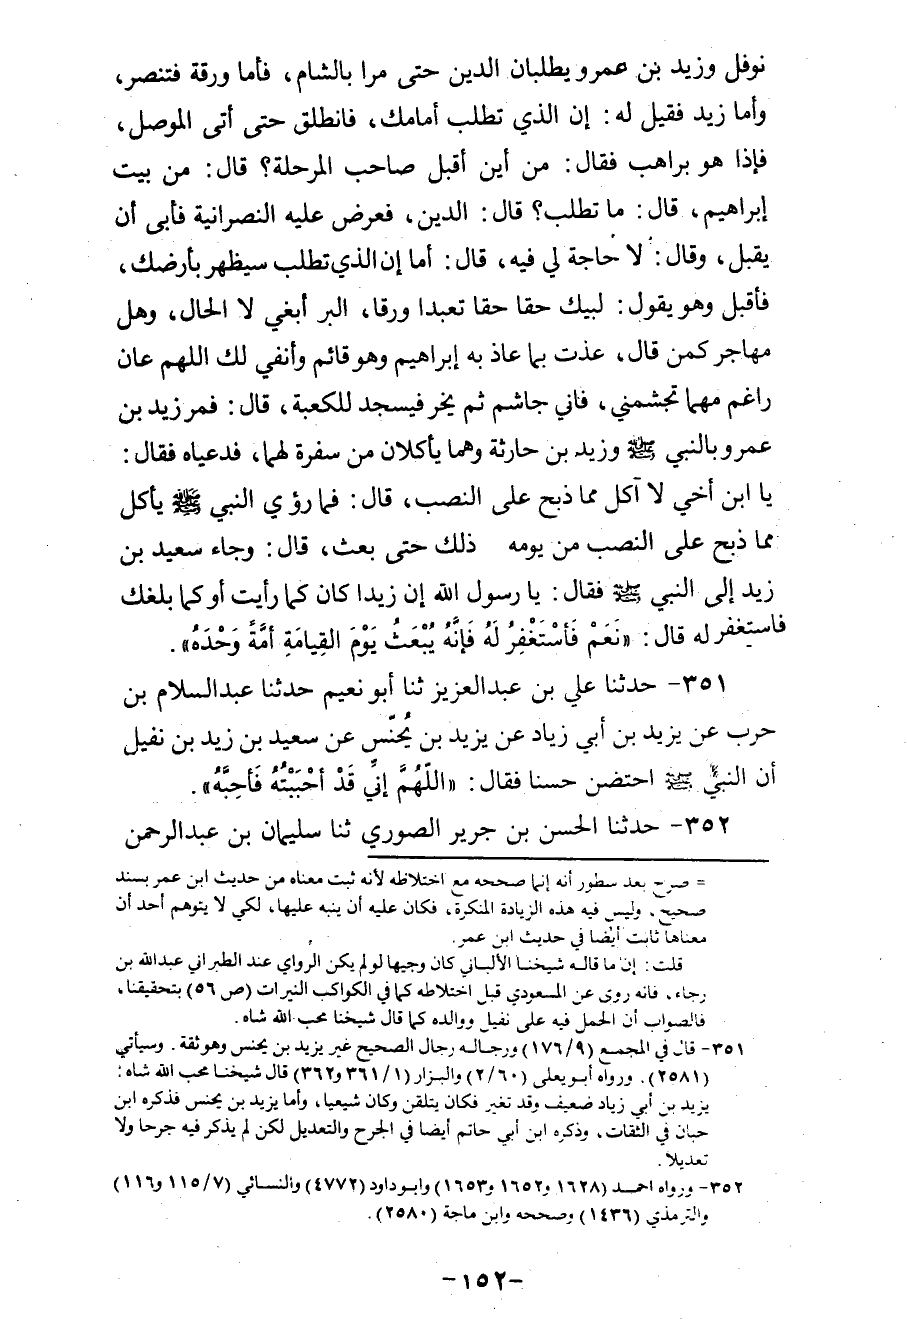 نوفل وزيد بن عمرو يطلبان الدين حتى مرا بالشام، فأما ورقة فتنصر،
وأما زيد فقيل له: إن الذي تطلب أمامك، فانطلق حتى أتى الموصل،
فإذا هو براهب فقال: من أين أقبل صاحب المرحلة؟ قال: من بيت
إبراهيم، قال: ما تطلب؟ قال: الدين، فعرض عليه النصرانية فأبى أن
يقبل، وقال: لا حاجة لي فيه، قال: أما إن الذي تطلب سيظهر بأرضك،
فأقبل وهو يقول: لبيك حقا حقا تعبدا ورقا، البر أبغي لا الحال، وهل
مهاجر كمن قال، عذت بما عاذ به إبراهيم وهو قائم وأنفي لك اللهم عان
راغم مهما تجشمني، فاني جاشم ثم يخر فيسجد للكعبة، قال: فمر زيد بن
عمرو بالنبي ﷺ وزيد بن حارثة وهما يأكلان من سفرة لهما، فدعياه فقال:
يا ابن أخي لا آكل مما ذبح على النصب، قال: فما رؤي النبي ﷺ يأكل
مما ذبح على النصب من يومه ذلك حتى بعث، قال: وجاء سعيد بن
زيد إلى النبي ﷺ فقال: يا رسول الله إن زيدا كان كما رأيت أو كما بلغك
فاستغفر له قال: «نَعَمْ فَأسْتَغْفِرُ لَهُ فَإنَّهُ يُبْعَثُ يَوْمَ القِيامَةِ أمَّةً وَحْدَهُ».
٣٥١- حدثنا علي بن عبدالعزيز ثنا أبو نعيم حدثنا عبدالسلام بن
حرب عن يزيد بن أبي زياد عن يزيد بن يُحَنّس عن سعيد بن زيد بن نفيل
أن النبيَّ ﷺ احتضن حسنا فقال: «اللّهُمَّ إنِّي قَدْ أحْبَبْتُهُ فَأحِبَّهُ».
٣٥٢- حدثنا الحسن بن جرير الصوري ثنا سليمان بن عبدالرحمن
= صرح بعد سطور أنه إنما صححه مع اختلاطه لأنه ثبت معناه من حديث ابن عمر بسند
صحيح، وليس فيه هذه الزيادة المنكرة، فكان عليه أن ينبه عليها، لكي لا يتوهم أحد أن
معناها ثابت أيضا في حديث ابن عمر.
قلت: إن ما قاله شيخنا الألباني كان وجيها لو لم يكن الرواي عند الطبراني عبدالله بن
رجاء، فانه روى عن المسعودي قبل اختلاطه كما في الكواكب النيرات (ص ٥٦) بتحقيقنا،
فالصواب أن الحمل فيه على نفيل ووالده كما قال شيخنا محب الله شاه.
٣٥١- قال في المجمع (١٧٦/٩) ورجاله رجال الصحيح غير يزيد بن يحنس وهو ثقة. وسيأتي
(٢٥٨١). ورواه أبو يعلى (٢/٦٠) والبزار (٣٦١/١ و٣٦٢) قال شيخنا محب الله شاه:
يزيد بن أبي زياد ضعيف وقد تغير فكان يتلقن وكان شيعيا، وأما يزيد بن يحنس فذكره ابن
حبان في الثقات، وذكره ابن أبي حاتم أيضا في الجرح والتعديل لكن لم يذكر فيه جرحا ولا
تعديلا.
٣٥٢- ورواه احمد (١٦٢٨ و١٦٥٢ و١٦٥٣) وابو داود (٤٧٧٢) والنسائي (١١٥/٧ و١١٦)
والترمذي (١٤٣٦) وصححه وابن ماجة (٢٥٨٠).
-١٥٢-